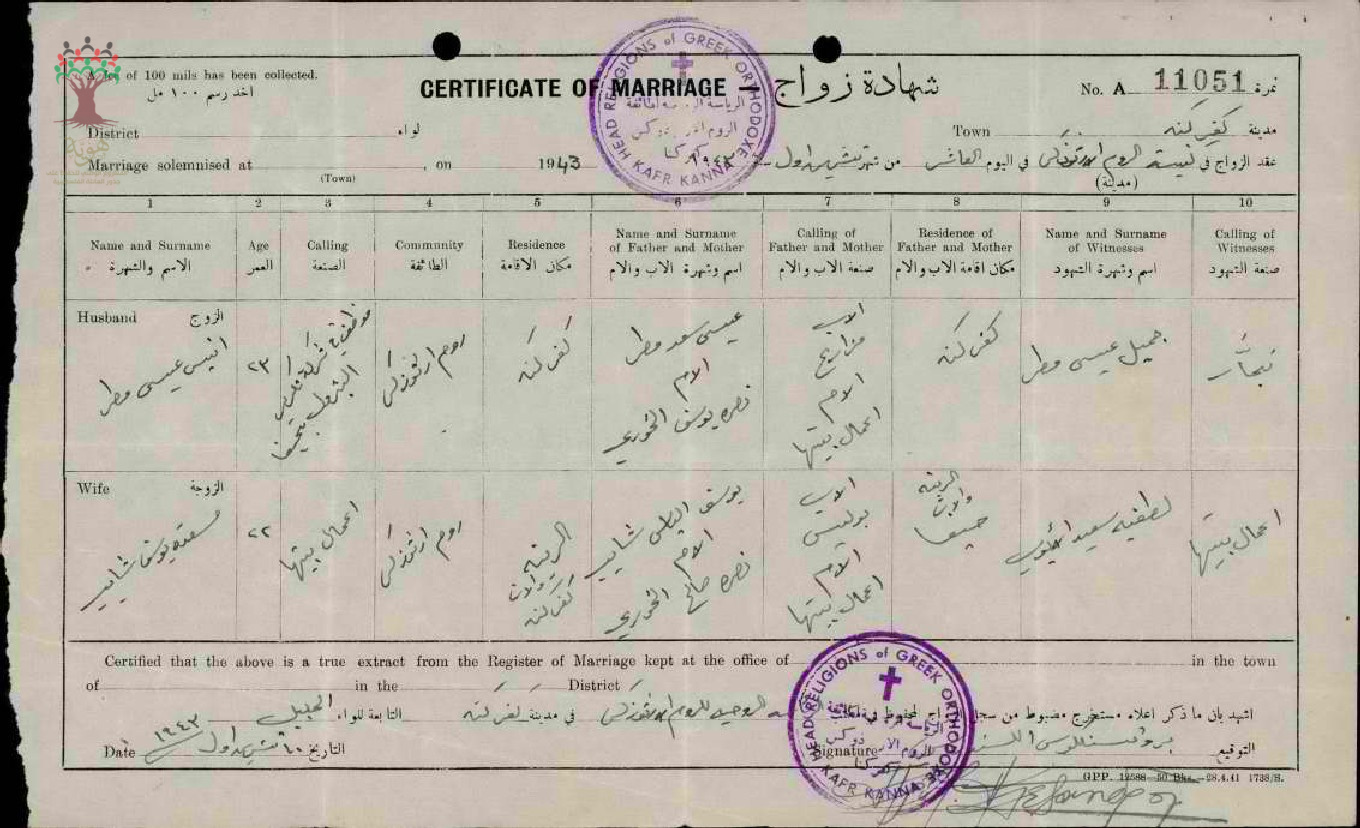 A fee of 100 mils has been collected.
اخذ رسم ١٠٠ مل
CERTIFICATE OF MARRIAGE — شهادة زواج
No. A 11051 نمرة
District لواء
Town كفر كنه مدينة
Marriage solemnised at , on 1943
(Town)
عقد الزواج في كنيسة الروم الارثوذكس في اليوم العاشر من شهر تشرين اول سنة ١٩٤٣
(مدينة)
HEAD RELIGIONS of GREEK ORTHODOXE
KAFR KANNA
1 2 3 4 5 6 7 8 9 10
Name and Surname
الاسم والشهرة
Age
العمر
Calling
الصنعة
Community
الطائفة
Residence
مكان الاقامة
Name and Surname
of Father and Mother
اسم وشهرة الاب والام
Calling of
Father and Mother
صنعة الاب والام
Residence of
Father and Mother
مكان اقامة الاب والام
Name and Surname
of Witnesses
اسم وشهرة الشهود
Calling of
Witnesses
صنعة الشهود
Husband الزوج
انيس عيسى مطر
٢٣
البترول بحيفا
روم ارثوذكس
كفر كنه
عيسى سعد مطر
الام
نصره يوسف الخوري
الاب
مزارع
الام
اعمال بيتها
كفر كنه
جميل عيسى مطر
نجار
Wife الزوجة
مسعده يوسف شاهين
٢٢
اعمال بيتها
روم ارثوذكس
الرينه
كفر كنه
يوسف الياس
الام
نصره صالح الخوري
الاب
بوليس
الام
اعمال بيتها
الرينه
حيفا
لطفيه سعيد
اعمال بيتها
Certified that the above is a true extract from the Register of Marriage kept at the office of in the town
of in the District
اشهد بان ما ذكر اعلاه مستخرج مضبوط من سجل الزواج المحفوظ في للروم الارثوذكس في مدينة كفر كنه التابعة للواء الجليل
Date ١٠ تشرين اول ١٩٤٣ التاريخ
Signature التوقيع
HEAD RELIGIONS of GREEK ORTHODOXE
KAFR KANNA
GPP. 12588—50 Bks.—28.4.41 1738/S.